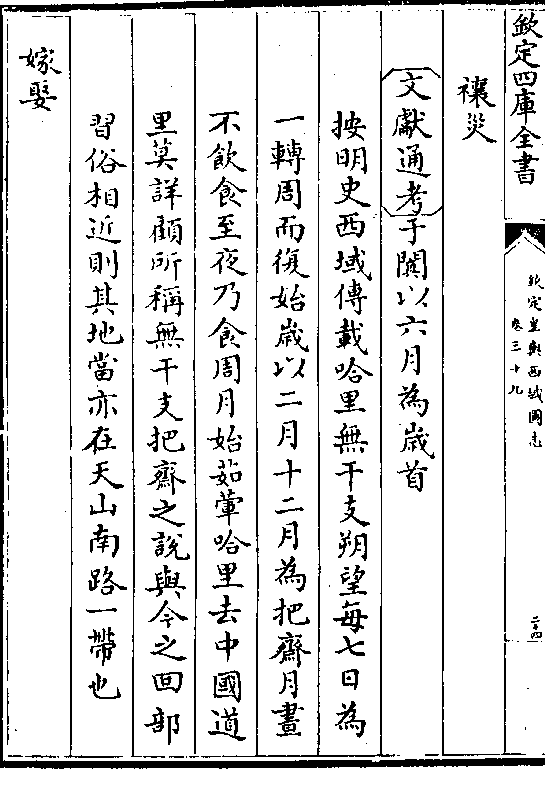 欽定四庫全書
欽定皇輿西域圖志
卷三十九
二十四
禳災
文獻通考于闐以六月為歲首
按明史西域傳載哈里無干支朔望每七日為
一轉周而復始歲以二月十二月為把齋月晝
不飲食至夜乃食周月始茹葷哈里去中國道
里莫詳顧所稱無干支把齋之說與今之回部
習俗相近則其地當亦在天山南路一帶也
嫁娶